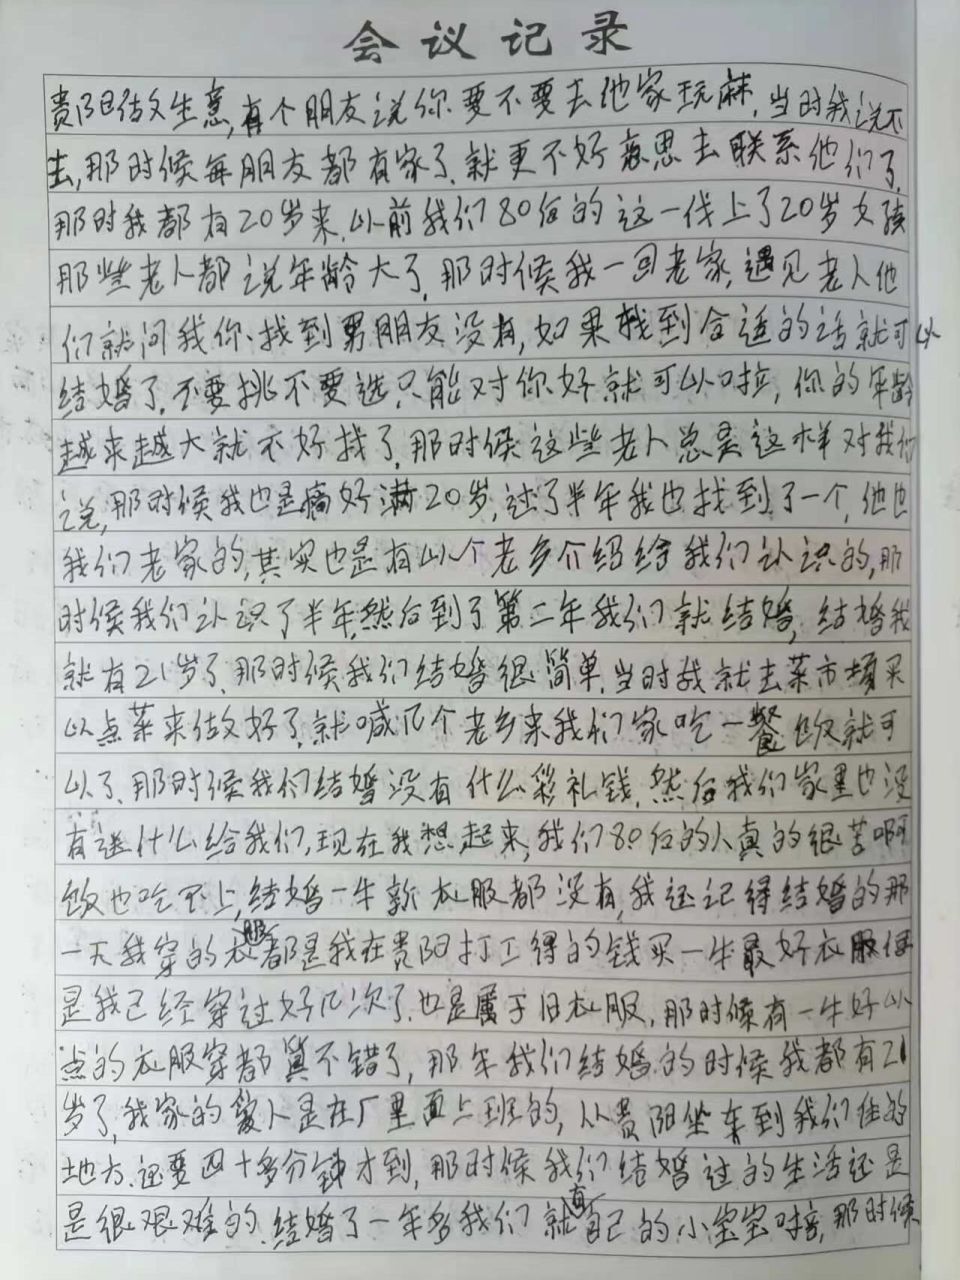 会议记录
贵阳做生意,有个朋友说你要不要去他家玩嘛,当时我说不
去,那时候每朋友都有家了,就更不好意思去联系他们了,
那时我都有20岁来,以前我们80后的这一代上了20岁女孩
那些老人都说年龄大了,那时候我一回老家,遇见老人他
们就问我你找到男朋友没有,如果找到合适的话就可以
结婚了,不要挑不要选只能对你好就可以啦,你的年龄
越来越大就不好找了,那时候这些老人总是这样对我们
说,那时候我也是刚好满20岁,过了半年我也找到了一个,他也
我们老家的,其实也是有以个老乡介绍给我们认识的,那
时候我们认识了半年,然后到了第二年我们就结婚,结婚我
就有21岁了,那时候我们结婚很简单,当时我就去菜市场买
以点菜来做好了,就喊几个老乡来我们家吃一餐饭就可
以了,那时候我们结婚没有什么彩礼钱,然后我们家里也没
有送什么给我们,现在我想起来,我们80后的人真的很苦啊
饭也吃不上,结婚一件新衣服都没有,我还记得结婚的那
一天我穿的衣服都是我在贵阳打工得的钱买一件最好衣服但
是我已经穿过好几次了,也是属于旧衣服,那时候有一件好以
点的衣服穿都算不错了,那年我们结婚的时候我都有21
岁了,我家的爱人是在厂里面上班的,从贵阳坐车到我们住的
地方,还要四十多分钟才到,那时候我们结婚过的生活还是
是很艰难的,结婚了一年多我们就有自己的小宝宝,那时候